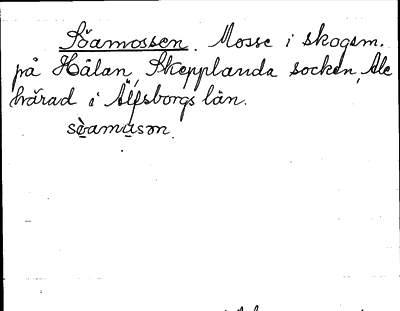 Söamossen. Mosse i skogsm.
på Hålan, Skepplanda socken, Ale
härad i Älfsborgs län.
sö̀amu̲sən.